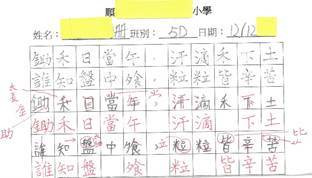 順 小學
姓名： 班別：5D 日期：12/12
鋤禾日當午，汗滴禾下土
誰知盤中飧，粒粒皆辛苦
鋤禾日當午，汗滴禾下土
鋤禾日當午 汗滴 下土
誰知盤中飧，粒粒皆辛苦
誰知盤 飧 粒 皆辛苦
助